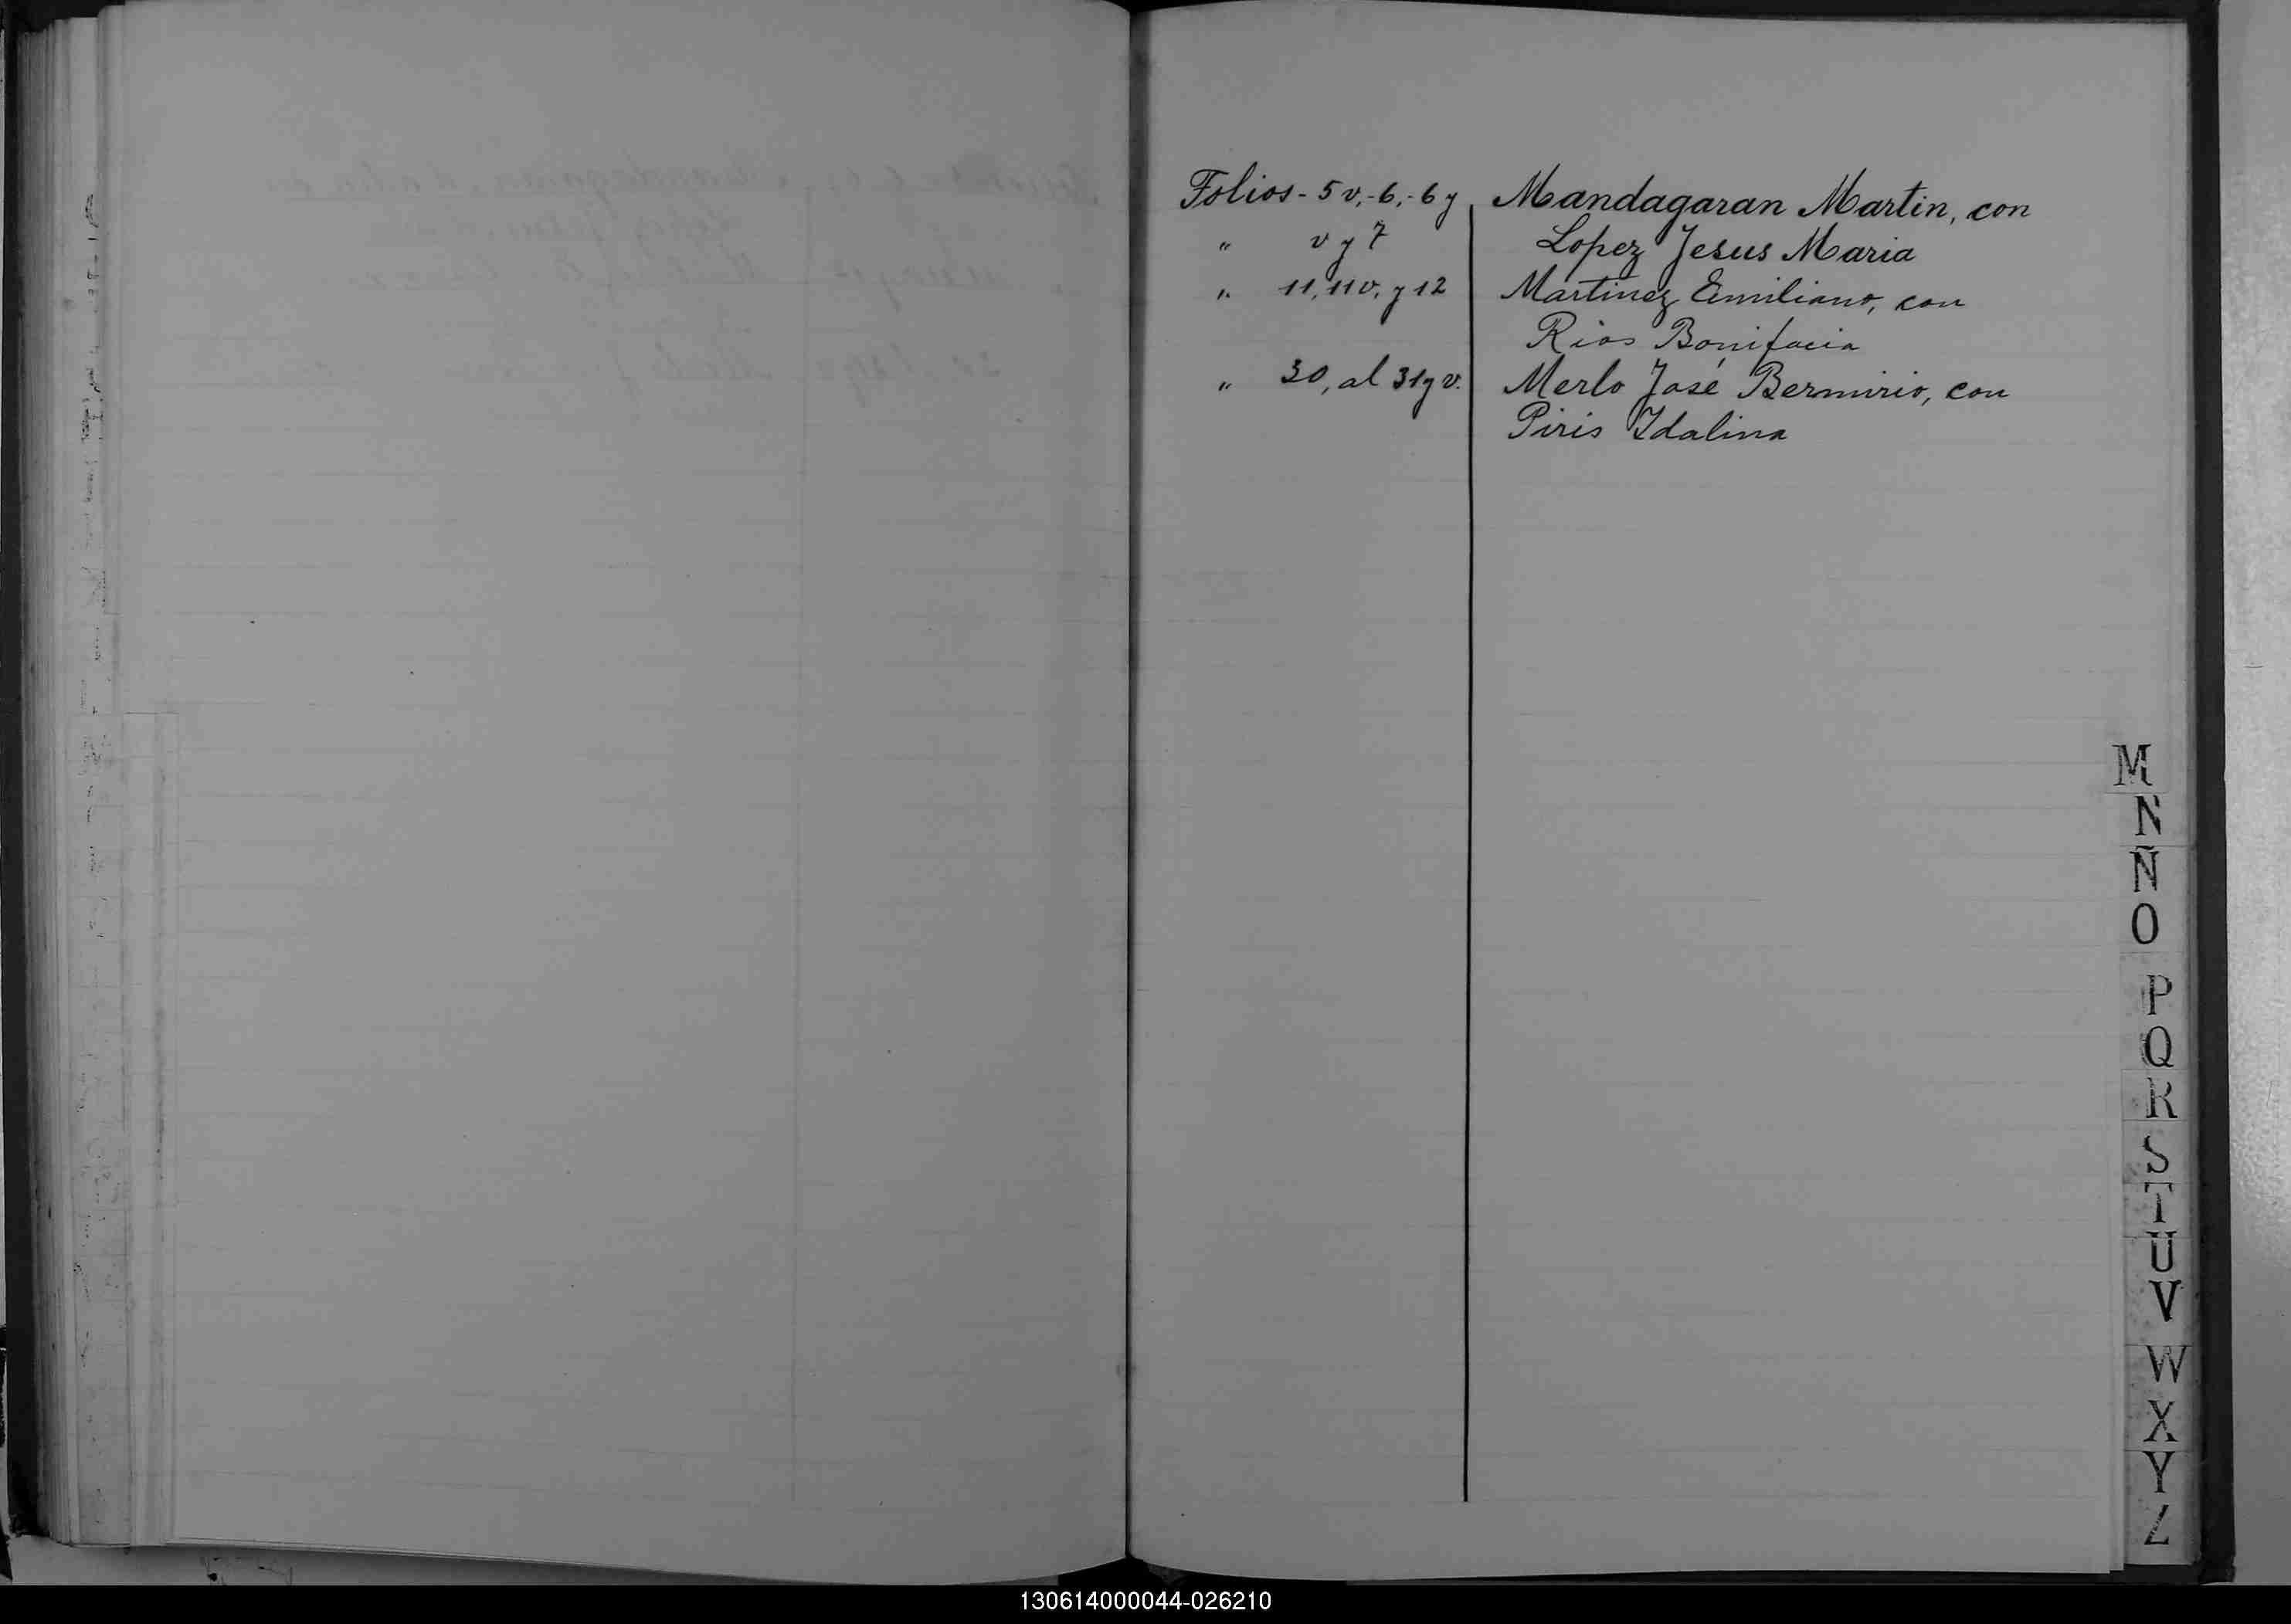 Folios - 5 v, - 6, - 6 y Mandagaran Martin, con
" v y 7 Lopez Jesus Maria
" 11, 11 v, y 12 Martinez Emiliano, con
Rios Bonifacia
" 30, al 31 y v. Merlo José Bermirio, con
Piris Idalina
M
N
Ñ
O
P
Q
R
S
T
U
V
W
X
Y
Z
130614000044-026210